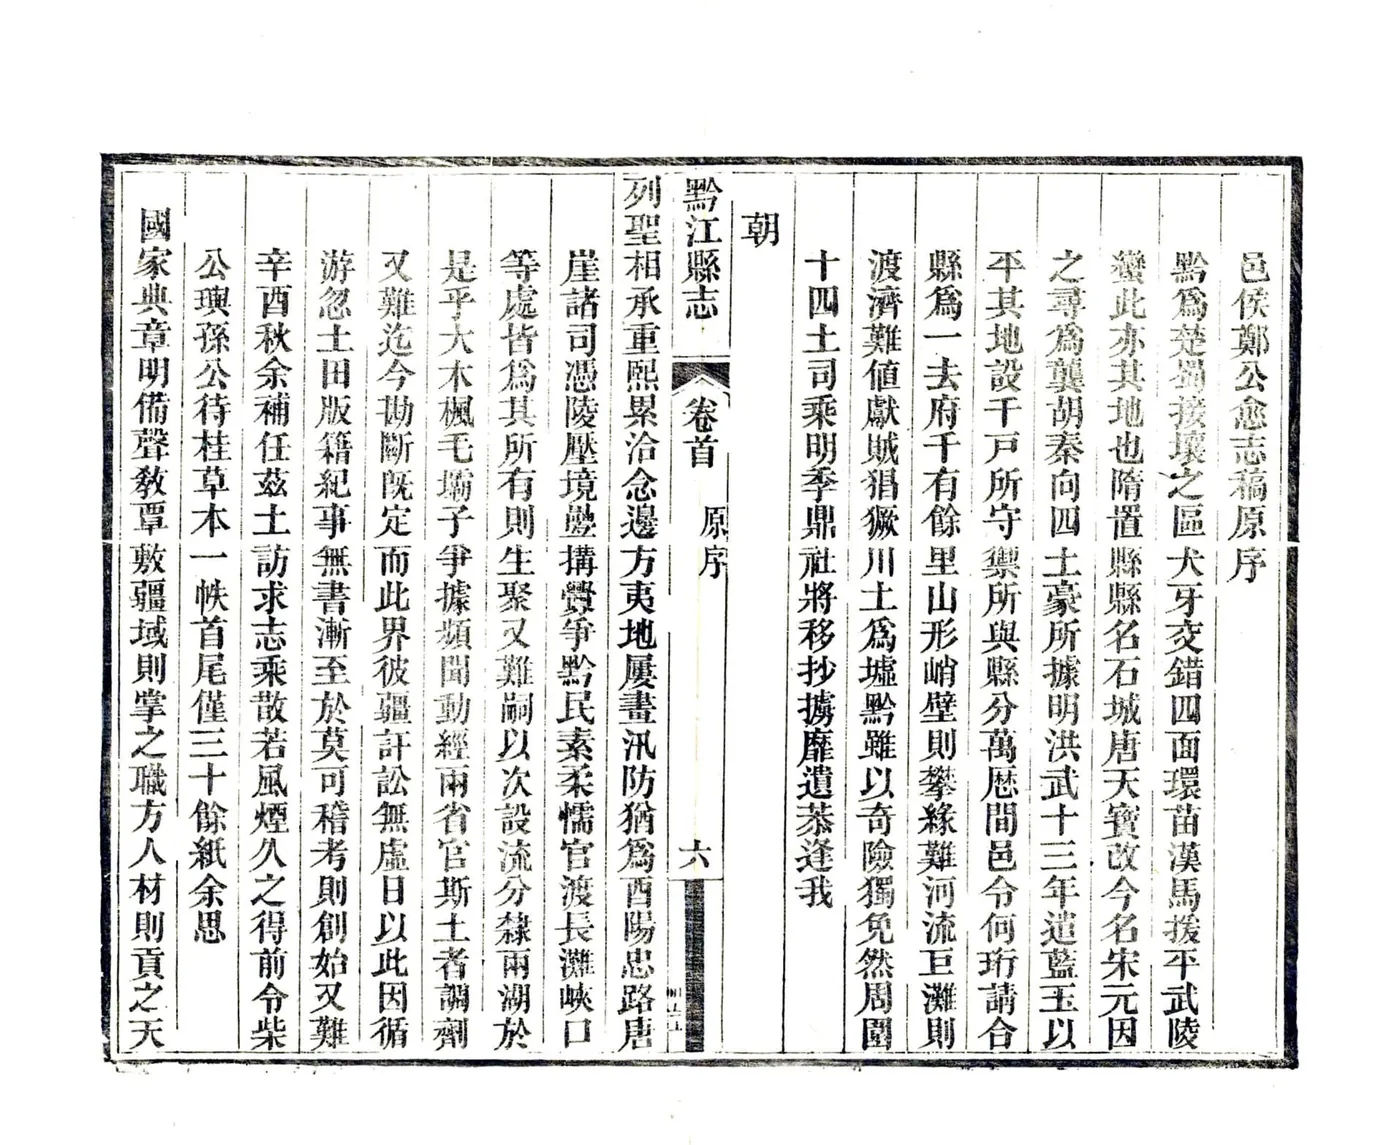 邑侯鄭公愈志稿原序
黔爲楚蜀接壤之區犬牙交錯四面環苗漢馬援平武陵
蠻此亦其地也隋置縣縣名石城唐天寶改今名宋元因
之尋爲龔胡秦向四土豪所據明洪武十三年遣藍玉以
平其地設千戸所守禦所與縣分萬歷間邑令何珩請合
縣爲一去府千有餘里山形峭壁則攀緣難河流巨灘則
渡濟難値獻賊猖獗川土爲墟黔雖以奇險獨免然周圍
十四土司乘明季鼎社將移抄擄靡遺恭逢我
朝
黔江縣志
卷首
原序
六
列聖相承重熙累洽念邊方夷地屢晝汛防猶爲酉陽忠路唐
崖諸司憑陵壓境疊搆釁爭黔民素柔懦官渡長灘峽口
等處皆爲其所有則生聚又難嗣以次設流分隸兩湖於
是乎大木楓毛壩子爭據頻聞動經兩省官斯土者調劑
又難迄今勘斷旣定而此界彼疆訐訟無虛日以此因循
游忽土田版籍紀事無書漸至於莫可稽考則創始又難
辛酉秋余補任茲土訪求志乘散若風煙久之得前令柴
公璵孫公待桂草本一帙首尾僅三十餘紙余思
國家典章明備聲敎覃敷疆域則掌之職方人材則貢之天